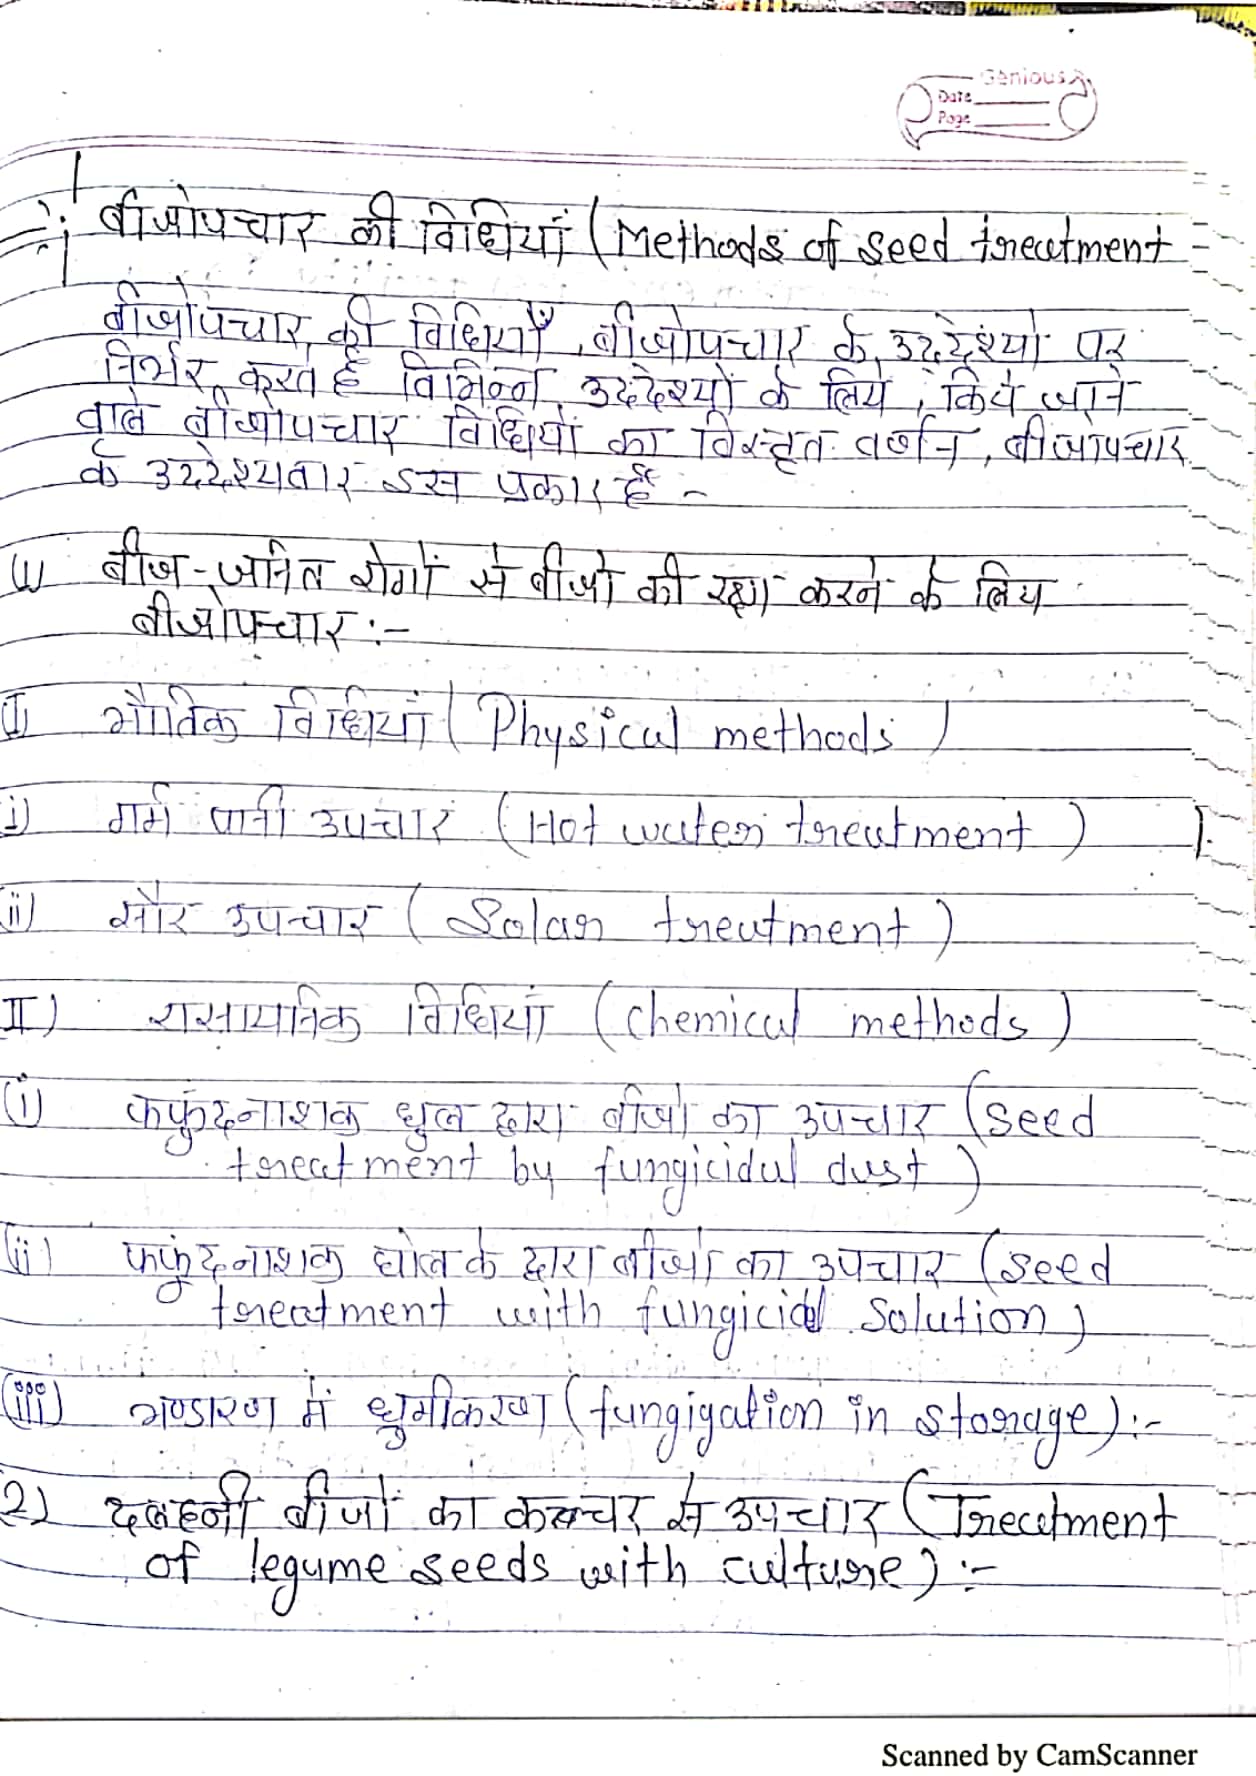 Genious
Date
Page
बीजोपचार की विधियां (Methods of seed treatment
बीजोपचार की विधियाँ, बीजोपचार के उद्देश्यो पर
निर्भर करते है विभिन्न उद्देश्यों के लिये, किये जाने
वाले बीजोपचार विधियों का विस्तृत वर्णन, बीजोपचार
के उद्देश्यवार इस प्रकार हैं -
(1) बीज-जनित रोगों से बीजो की रक्षा करने के लिय
बीजोपचार :-
I) भौतिक विधियां (Physical methods)
i) गर्म पानी उपचार (Hot water treatment)
ii) सौर उपचार (Solar treatment)
II) रासायनिक विधियां (chemical methods)
(i) फफुंदनाशक धुल द्वारा बीजो का उपचार (seed
treatment by fungicidal dust)
(ii) फफुंदनाशक घोल के द्वारा बीजो का उपचार (seed
treatment with fungicidal solution)
(iii) भण्डारण में धुमीकरण (fungigation in storage) :-
2) दलहनी बीजों का कल्चर से उपचार (Treatment
of legume seeds with culture) :-
Scanned by CamScanner